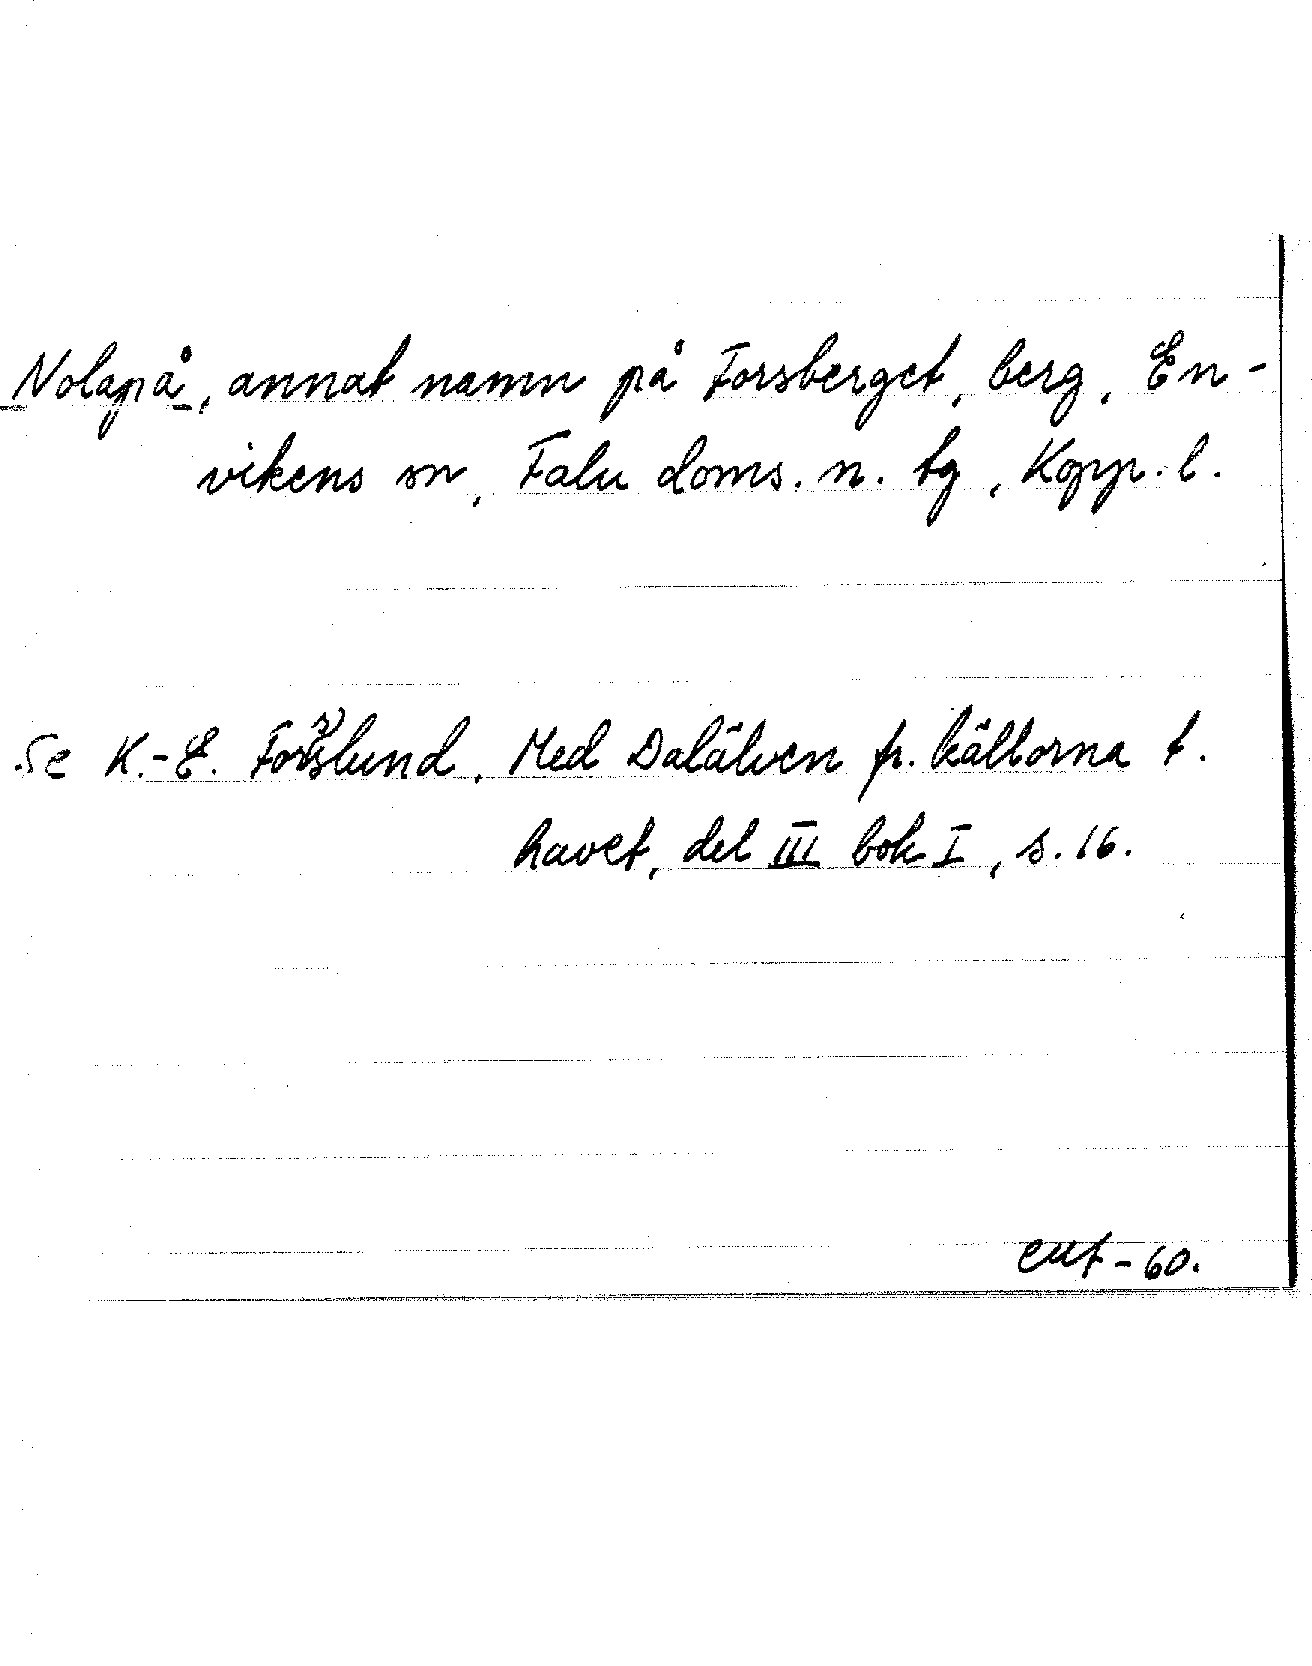 Nolapå, annat namn på Forsberget, berg, En-
vikens sn, Falu doms. n. tg, Kopp. l.
Se K.-E. Forsslund, Med Dalälven fr. källorna t.
havet, del III bok I, s. 16.
-60.